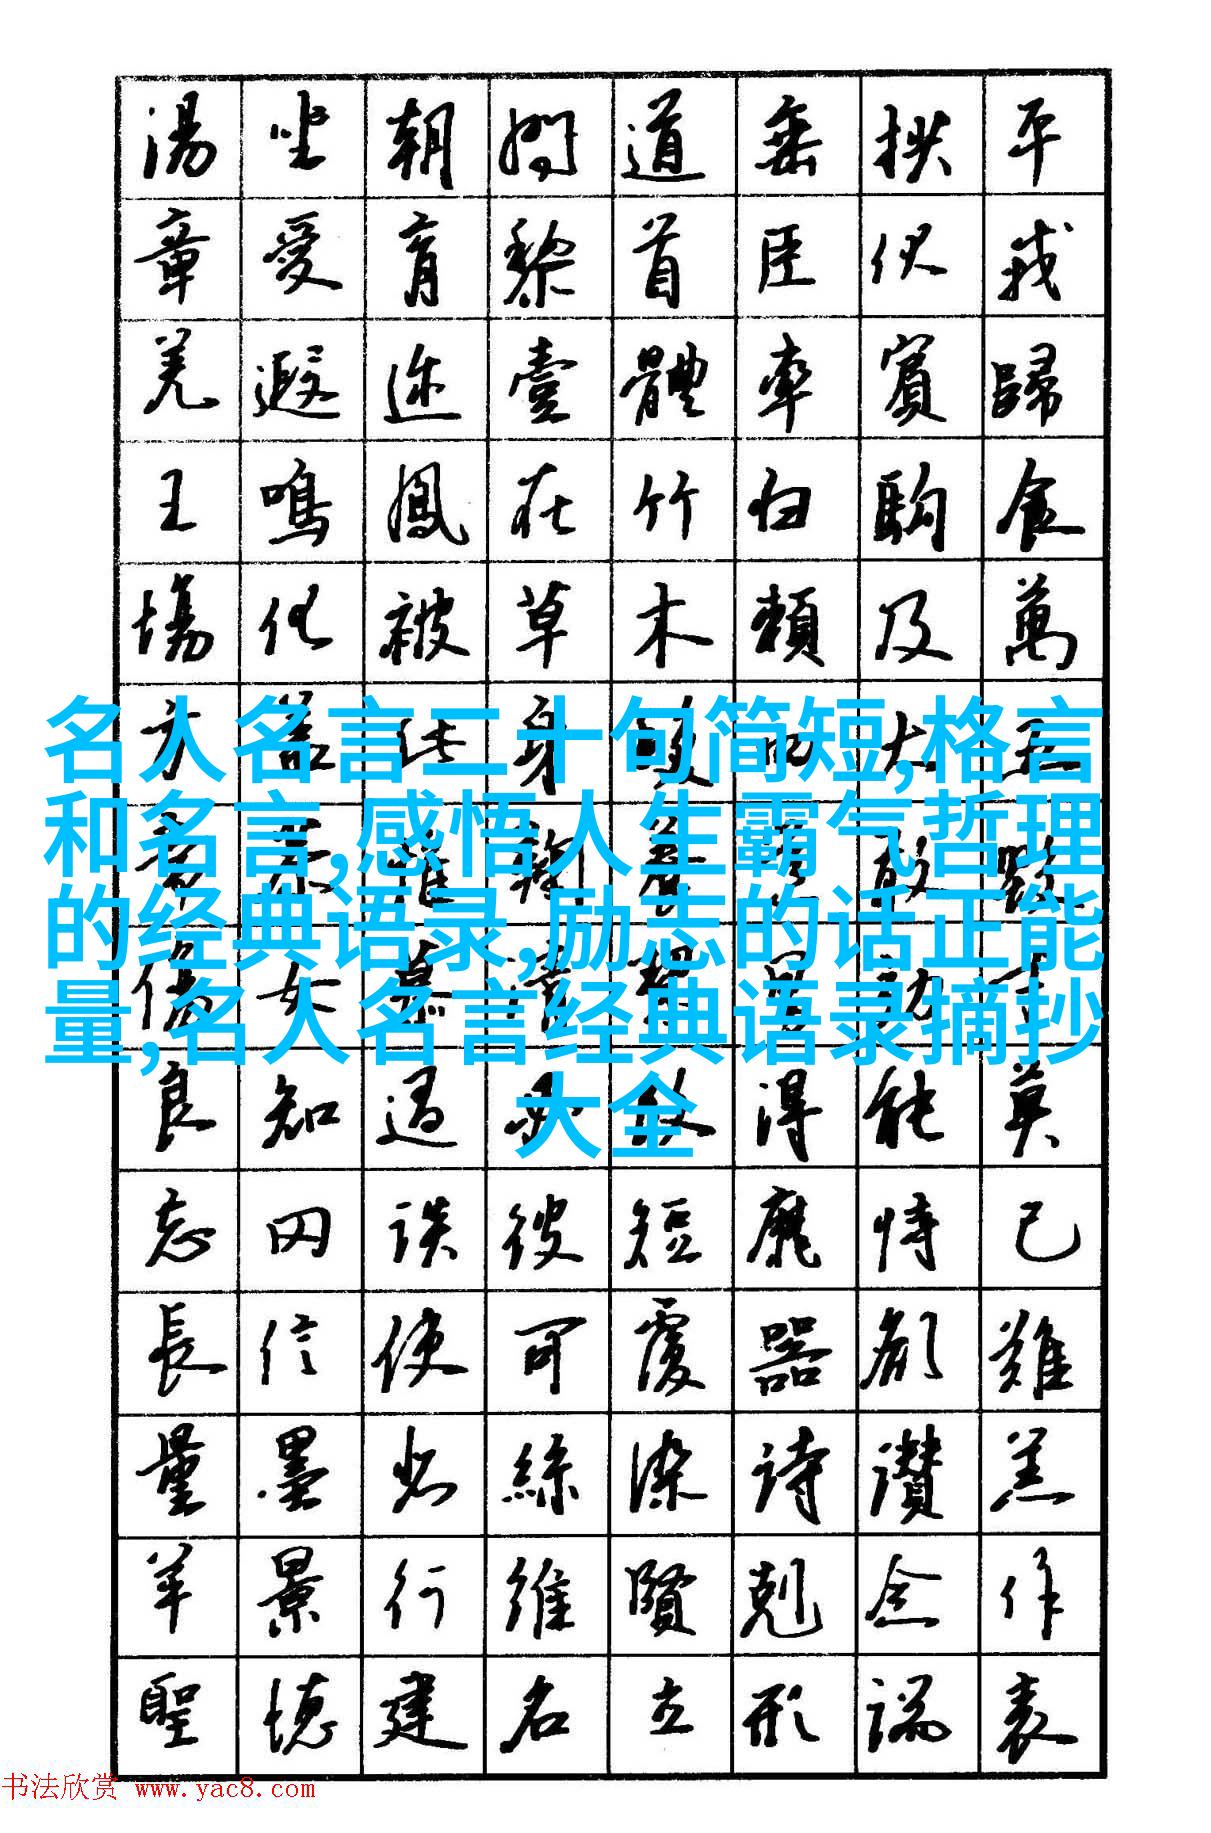 湯坐朝問道垂拱平
章愛育黎首臣伏戎
羌遐迩壹體率賓歸
王鳴鳳在竹白駒食
場化被草木賴及萬
名人名言二十句简短,格言
和名言,感悟人生霸气哲理
的经典语录,励志的话正能
量,名人名言经典语录摘抄
大全
良知過必改得能莫
忘罔談彼短靡恃己
長信使可覆器欲難
量墨悲絲染詩讚羔
羊景行維賢剋念作
聖德建名立形端表
书法欣赏 www.yac8.com